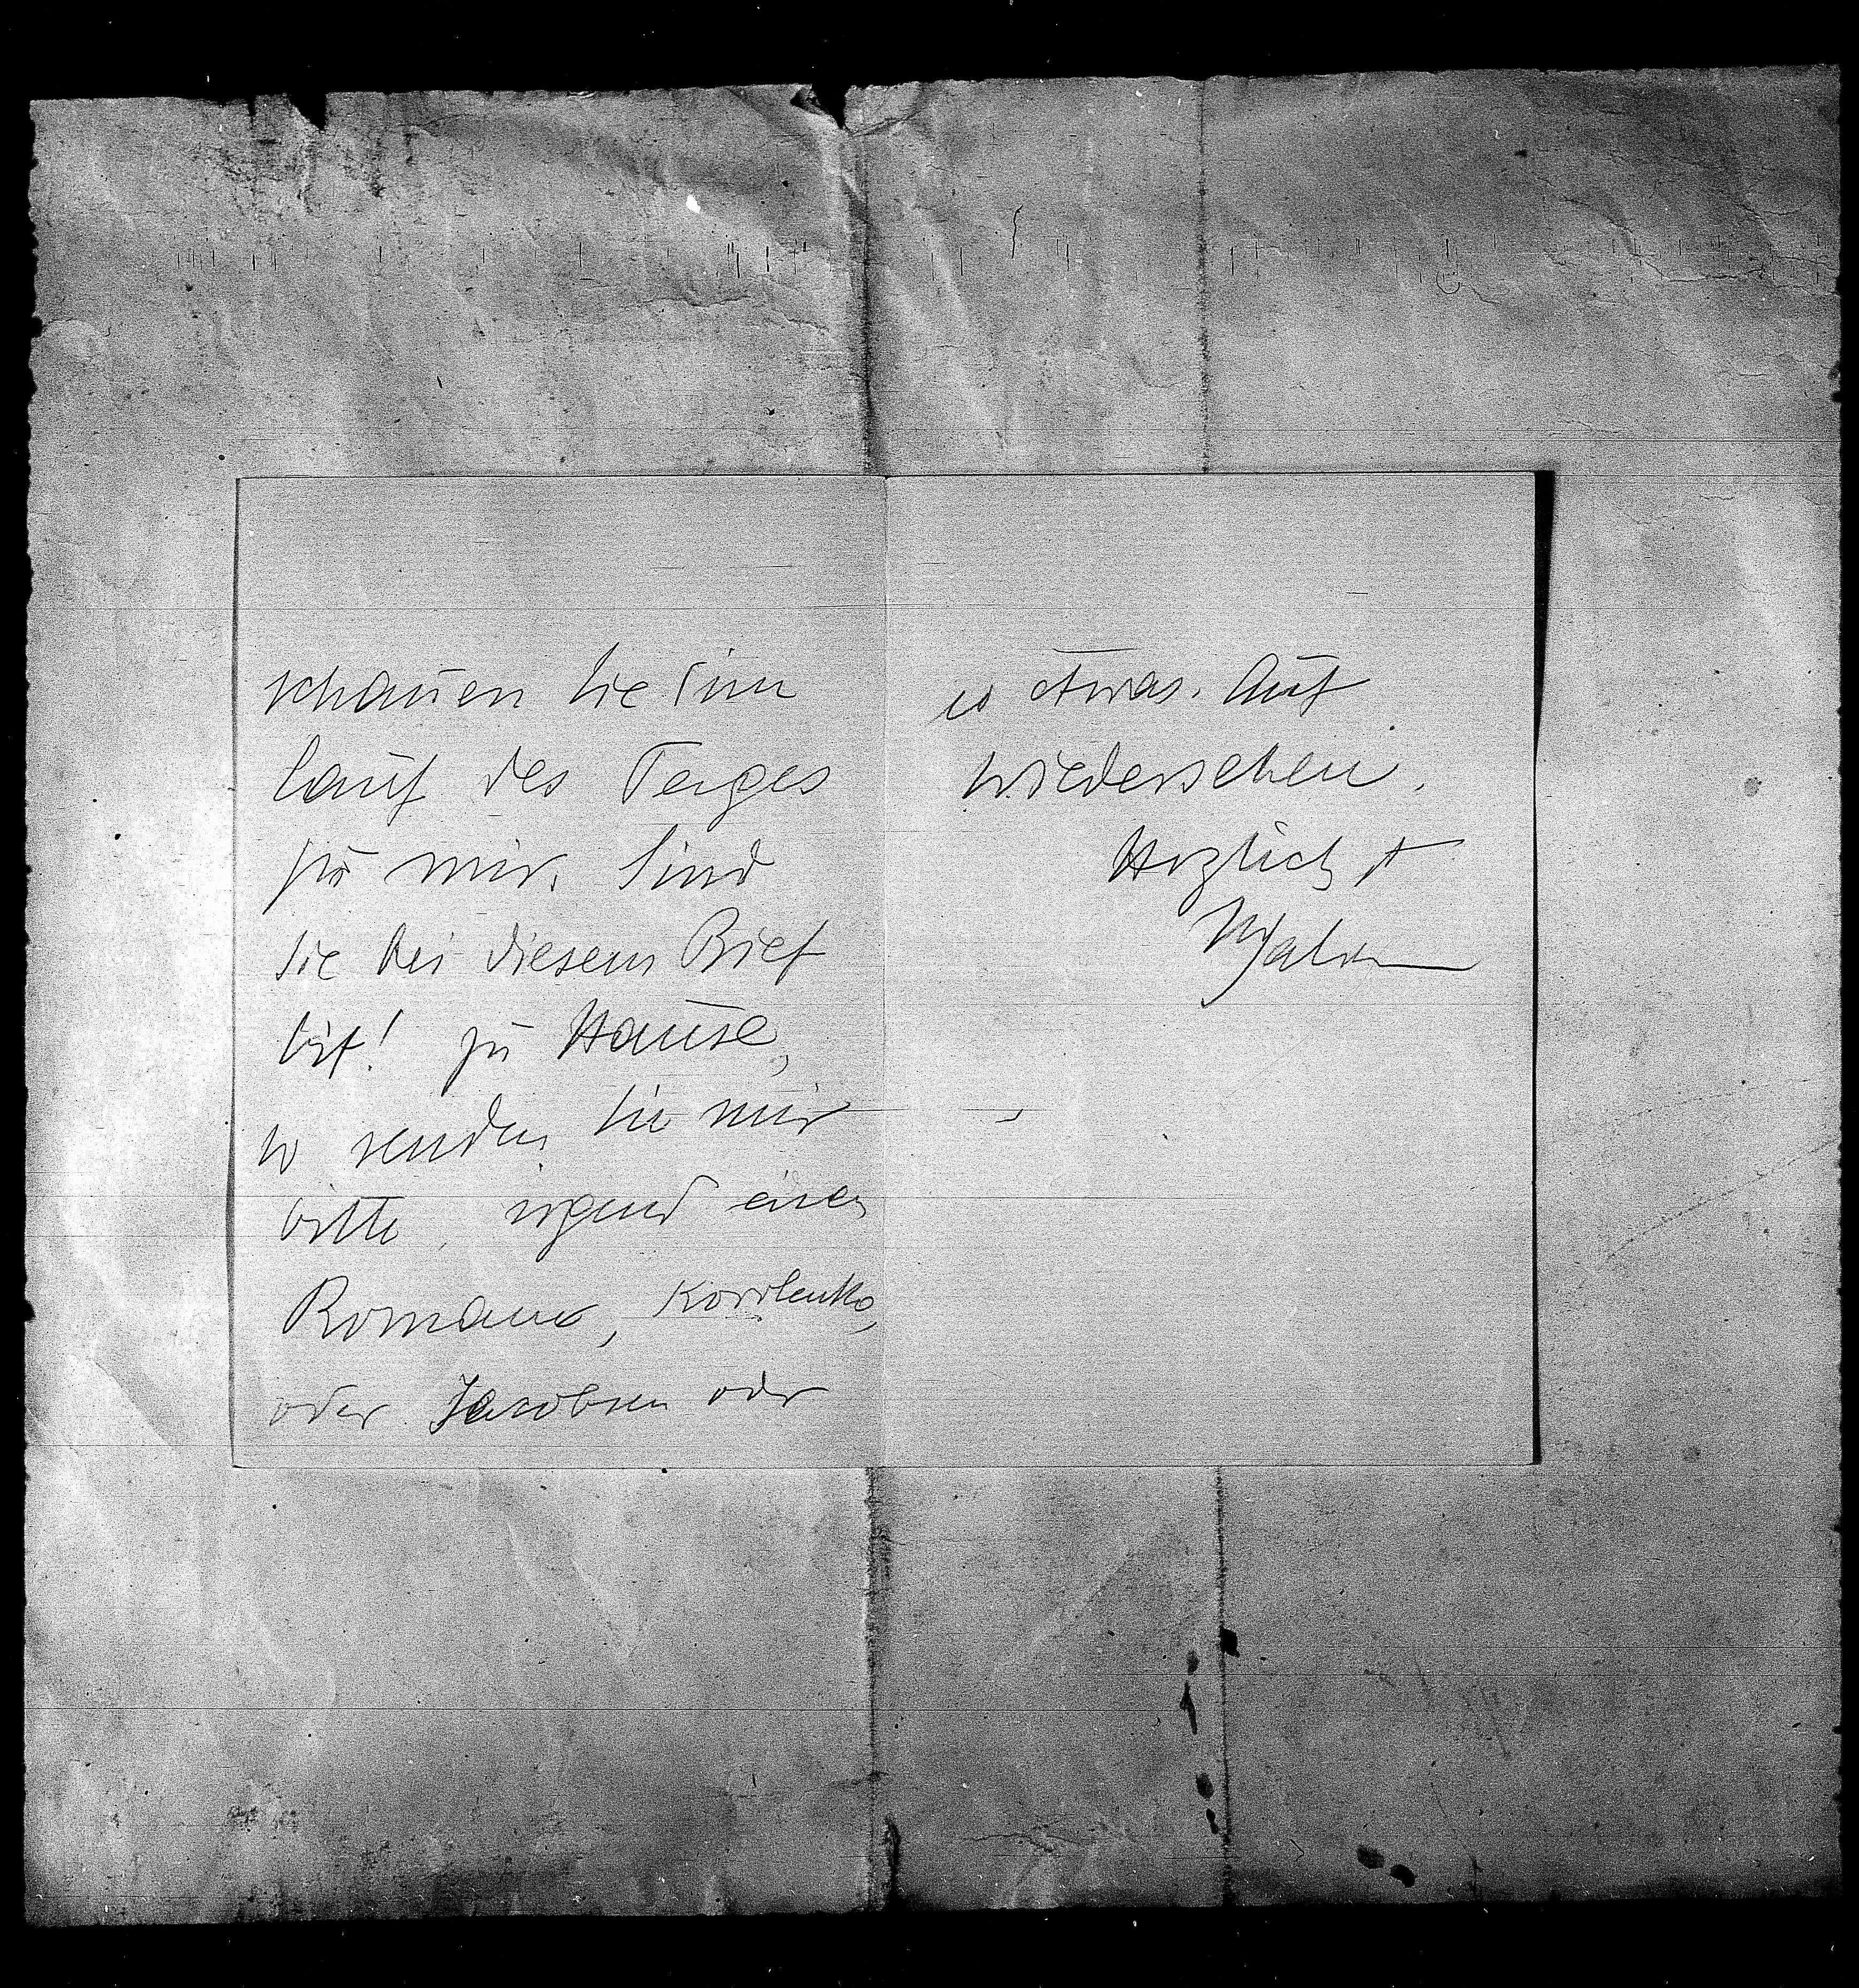 schauen Sie im
lauf des Tages
zu mir. Sind
Sie bei diesem Brief
ist! zu Hause,
so senden Sie mir
bitte irgend einen
Romano, Korolenko,
oder Jacobsen oder
so etwas. Auf
wiedersehen.
Herzlichst